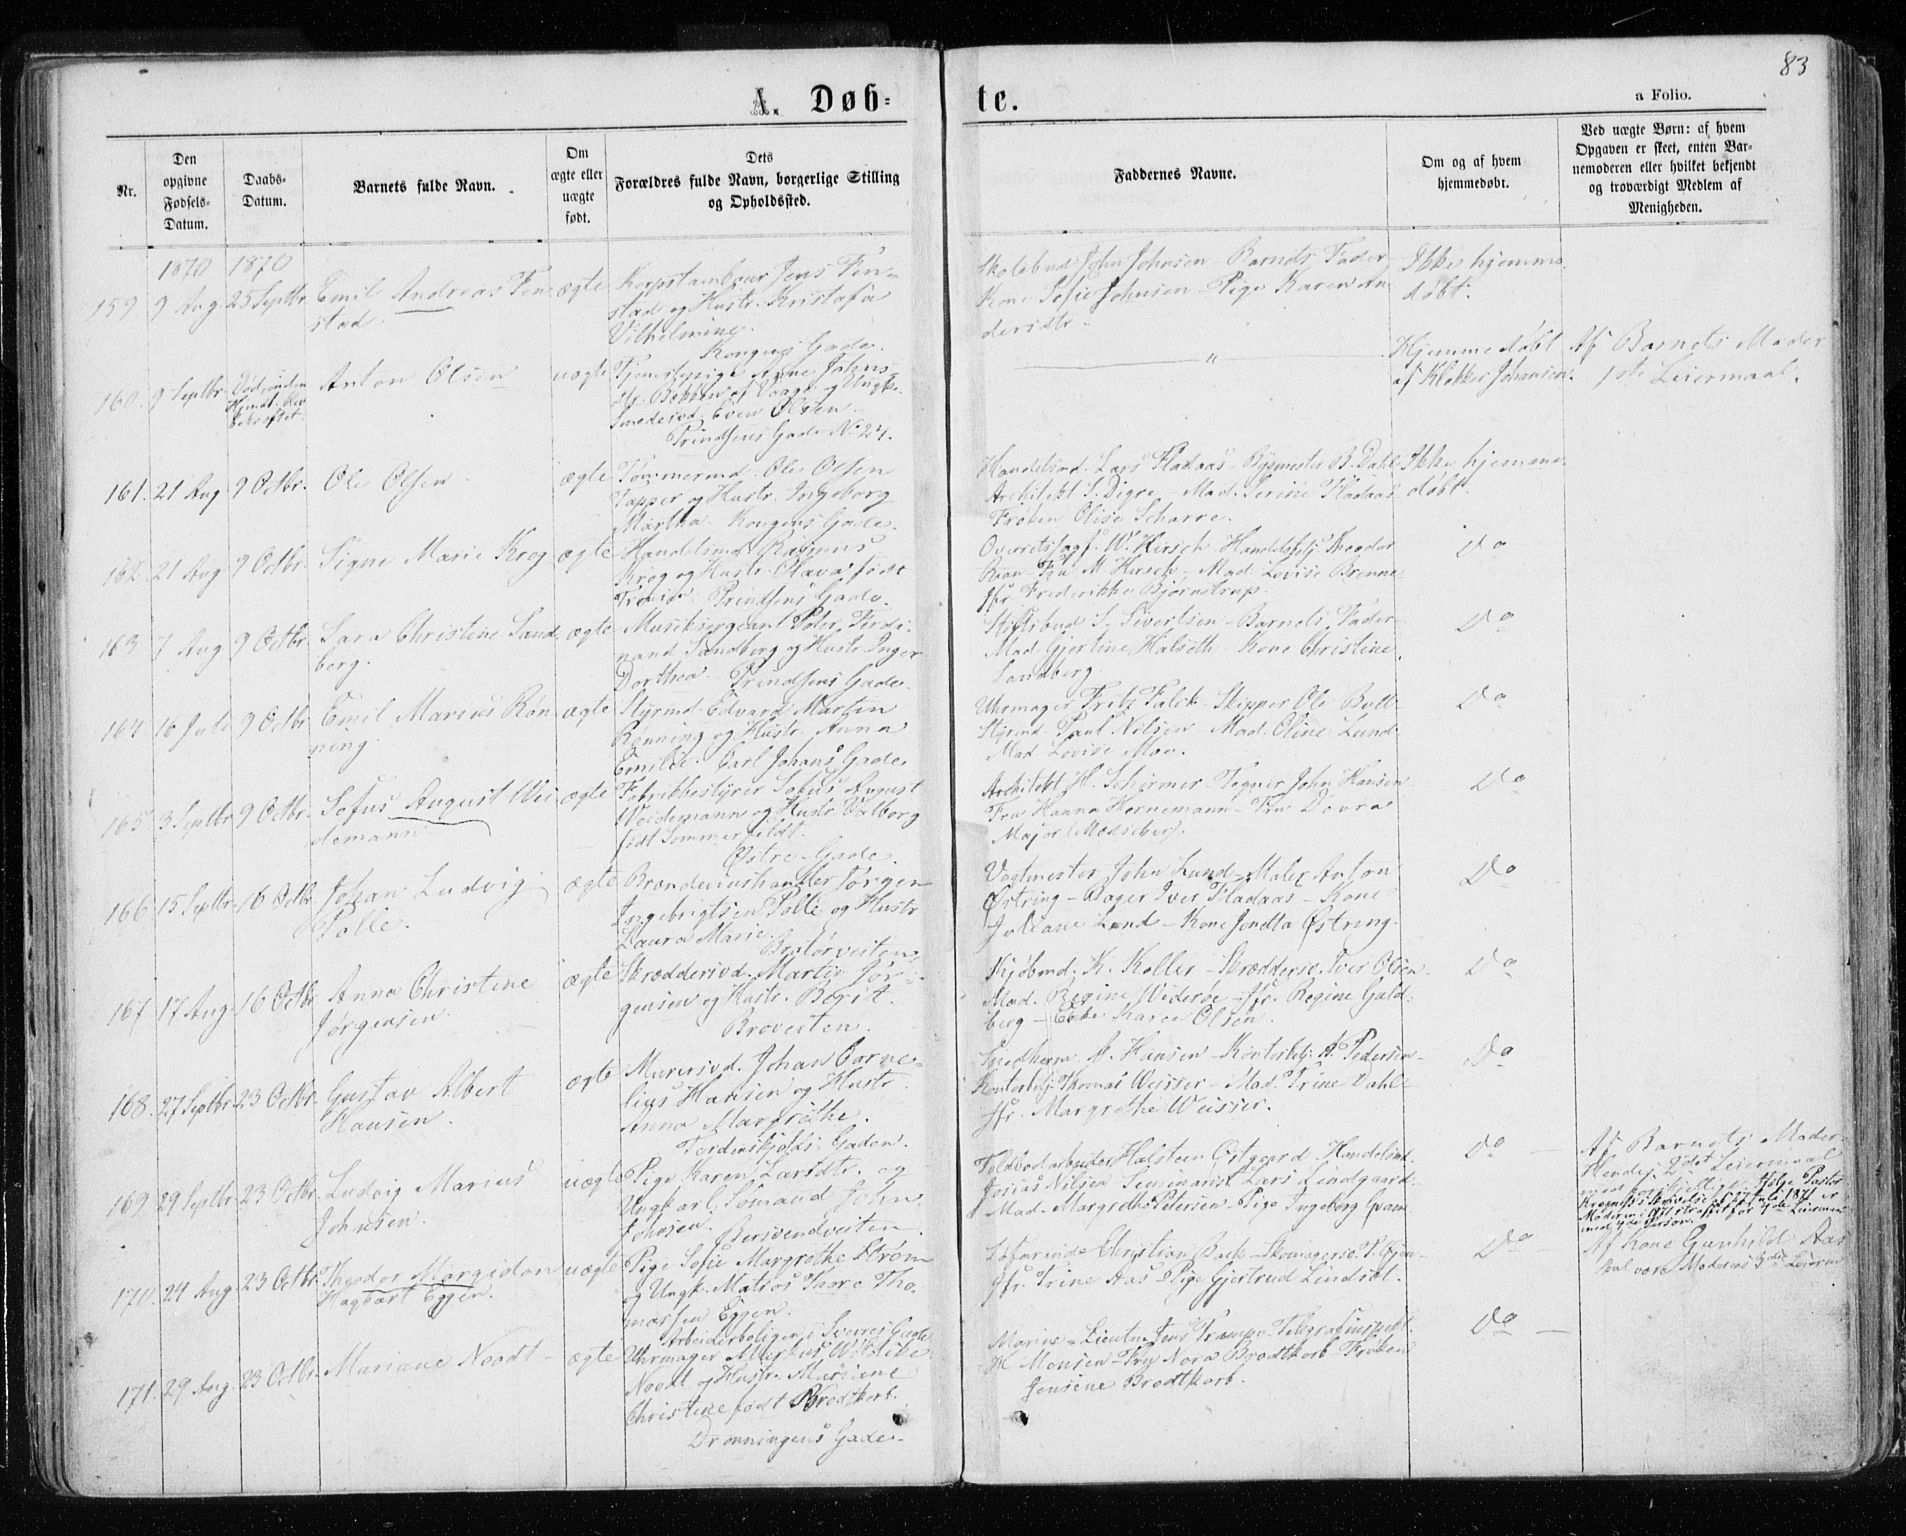 83
A. Døb-te.
a Folio.
Nr.
Den opgivne Fødsels-Datum.
Daabs-Datum.
Barnets fulde Navn.
Om ægte eller uægte født.
Dets Forældres fulde Navn, borgerlige Stilling og Opholdssted.
Faddernes Navne.
Om og af hvem hjemmedøbt.
Ved uægte Børn: af hvem Opgaven er skeet, enten Barnemoderen eller hvilket bekjendt og troværdigt Medlem af Menigheden.
1870 1870
159 9 Aug 25 Septbr. Emil Andreas Fen-
stad.
ægte
Korpstambour Jens Fen-
stad og Hustr. Kristofa
Vilhelmine.
Kongens Gade.
Skolebud John Johnsen - Barnets Fader
Kone Sofie Johnsen - Pige Karen An
dersdtr.
Ikke hjemme-
døbt.
160. 9 Septbr. Anton Olsen
uægte
Tjenestepige Johns-
dtr. Bekken af Vaage og Ungk.
Smedesvd. Even Olsen.
Prindsens Gade No 24.
"
Hjemmedøbt
af Klokker Johansen.
Af Barnets Moder
1ste Leiermaal.
161. 21 Aug. 9 Octbr. Ole Olsen
ægte
Tømmermd. Ole Olsen
Tapper og Hustr. Ingeborg
Martha. Kongens Gade.
Handelsmd. Lars Fladaas - Bygmester B. Dahl
Architekt S. Digre - Mad. Serine Fladaas
Frøken Olise Scharre.
Ikke hjemme-
døbt.
162. 21 Aug. 9 Octbr. Signe Marie Krog
ægte
Handelsmd. Rasmus
Krog og Hustr. Olava født
Prindsens Gade.
Overretssagf. W. Hirsch - Handelsbetj. Theodor
Fru M. Hirsch - Mad. Lovise Brenne
Jfr. Frederikke Bjørnstrup.
Do
163 7 Aug. 9 Octbr. Sara Christine Sand-
berg.
ægte
Musiksergeant Peter Ferdi-
nand Sandberg og Hustr. Inger
Dorthea. Prindsens Gade.
Stiftsbud S. Sivertsen - Barnets Fader
Mad. Gjertine Halseth - Kone Christine
Sandberg.
Do
164. 16 Juli 9 Octbr. Emil Marius Røn
ning.
ægte
Styrmd. Edvard Martin
Rønning og Hustr. Anna
Emilie. Carl Johans Gade.
Uhrmager Fritz Falck - Skipper Ole Bull
Styrmd. Paul Nilsen - Mad. Oline Lund
Mad. Lovise Moe.
Do
165. 3 Septbr. 9 Octbr. Sofus August Wei
demann
ægte
Fabrikbestyrer Sofus August
Weidemann og Hustr. Valborg
født Sommerfeldt.
Østre Gade.
Architekt H. Schirmer - Tegner John Hansen
Fru Hanna Hornemann - Fru Dovra
Major
Do
166. 15 Septbr. 16 Octbr. Johan Ludvig
Tolle.
ægte
Brændevinshandler Jørgen
Ingebrigtsen Tolle og Hustr.
Laura Marie.
Bratørveiten.
Vagtmester John Lund - Maler Anton
Østring - Bager Iver Fladaas - Kone
Juliane Lund - Kone Jendta Østring.
Do
167. 17 Aug. 16 Octbr. Anna Christine
Jørgensen.
ægte
Skræddersvd. Martin Jør-
gensen og Hustr. Berit.
Broveiten.
Kjøbmd. K. Koller - Skræddersv. Iver Olsen
Mad. Regine Widerøe - Jfr. Regine Guld-
berg - Olsen.
Do
168. 27 Septbr. 23 Octbr. Gustav Albert
Hansen.
ægte
Murersvd. Johan Corne-
lius Hansen og Hustr.
Anna Margrethe.
Tordenskjolds Gaden.
A. Hansen - Kontorbetj. A. Pedersen
Kontorbetj. Thomas Weisser - Mad. Trine Dahle
Jfr. Margrethe Weisser.
Do
169 29 Septbr. 23 Octbr. Ludvig Marius
Johnsen.
uægte
Pige Karen Larsdtr. og
Ungkarl Sømand John
Johnsen. Bersvendveiten.
Toldbodarbeider Halsteen Østgaard - Handelsmd.
Josias Nilsen - Seminarist Lars Lindgaard
Mad. Margrethe Petersen - Pige Ingeborg Gram
Do
Af Barnets Moder
Hendes 2det Leiermaal
170. 24 Aug. 23 Octbr. Theodor Margidon
Hagbart Eggen.
uægte
Pige Sofie Margrethe Strøm
og Ungk. Matros Thore Tho-
massen Eggen.
Arbeiderboligen i Sverres Gade
Søfarende Christian Bach - Skomagersv. P. Gjen-
Jfr. Trine Aas - Pige Gjertrud Lindset.
Do
Af Kone Gunhild Aas
Skal være Moderens 3die Leierm
171. 29 Aug. 23 Octbr. Mariane Noodt
ægte
Uhrmager
Noodt og Hustr. Mariane
Christine født Brodtkorb.
Dronningens Gade.
Marine-Lieutn. Jens Trampe - Telegrafinspekt.
H. Monsen - Fru Nora Brodtkorb - Frøken
Jensine Brodtkorb.
Do